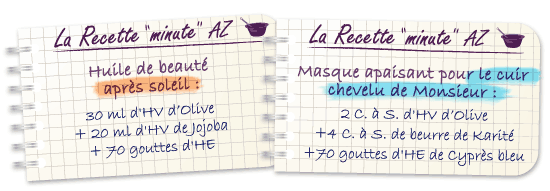 La Recette "minute" AZ
Huile de beauté
après soleil :
30 ml d'HV d'Olive
+ 20 ml d'HV de Jojoba
+ 70 gouttes d'HE
La Recette "minute" AZ
Masque apaisant pour le cuir
chevelu de Monsieur :
2 C. à S. d'HV d'Olive
+4 C. à S. de beurre de Karité
+70 gouttes d'HE de Cyprès bleu